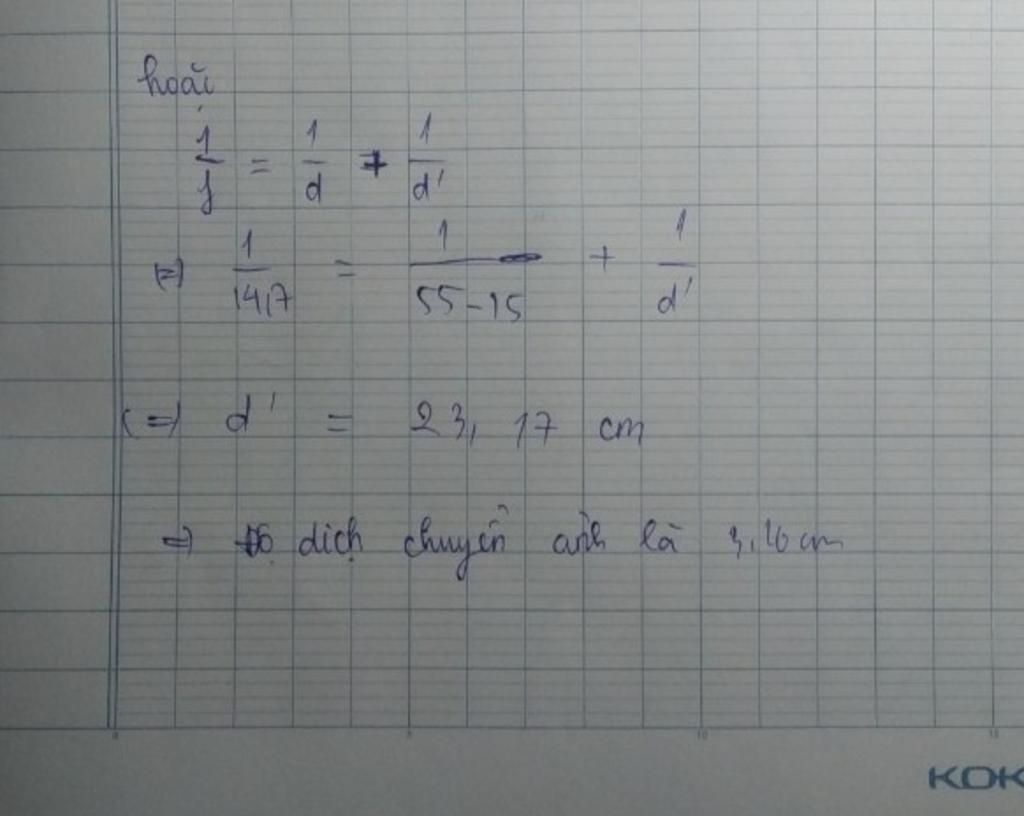 hoặc
1/f = 1/d + 1/d'
(=) 1/14,7 = 1/55-15 + 1/d'
(=) d' = 23,17 cm
=) độ dịch chuyển ảnh là 3,10 cm
5 10 15
KOK